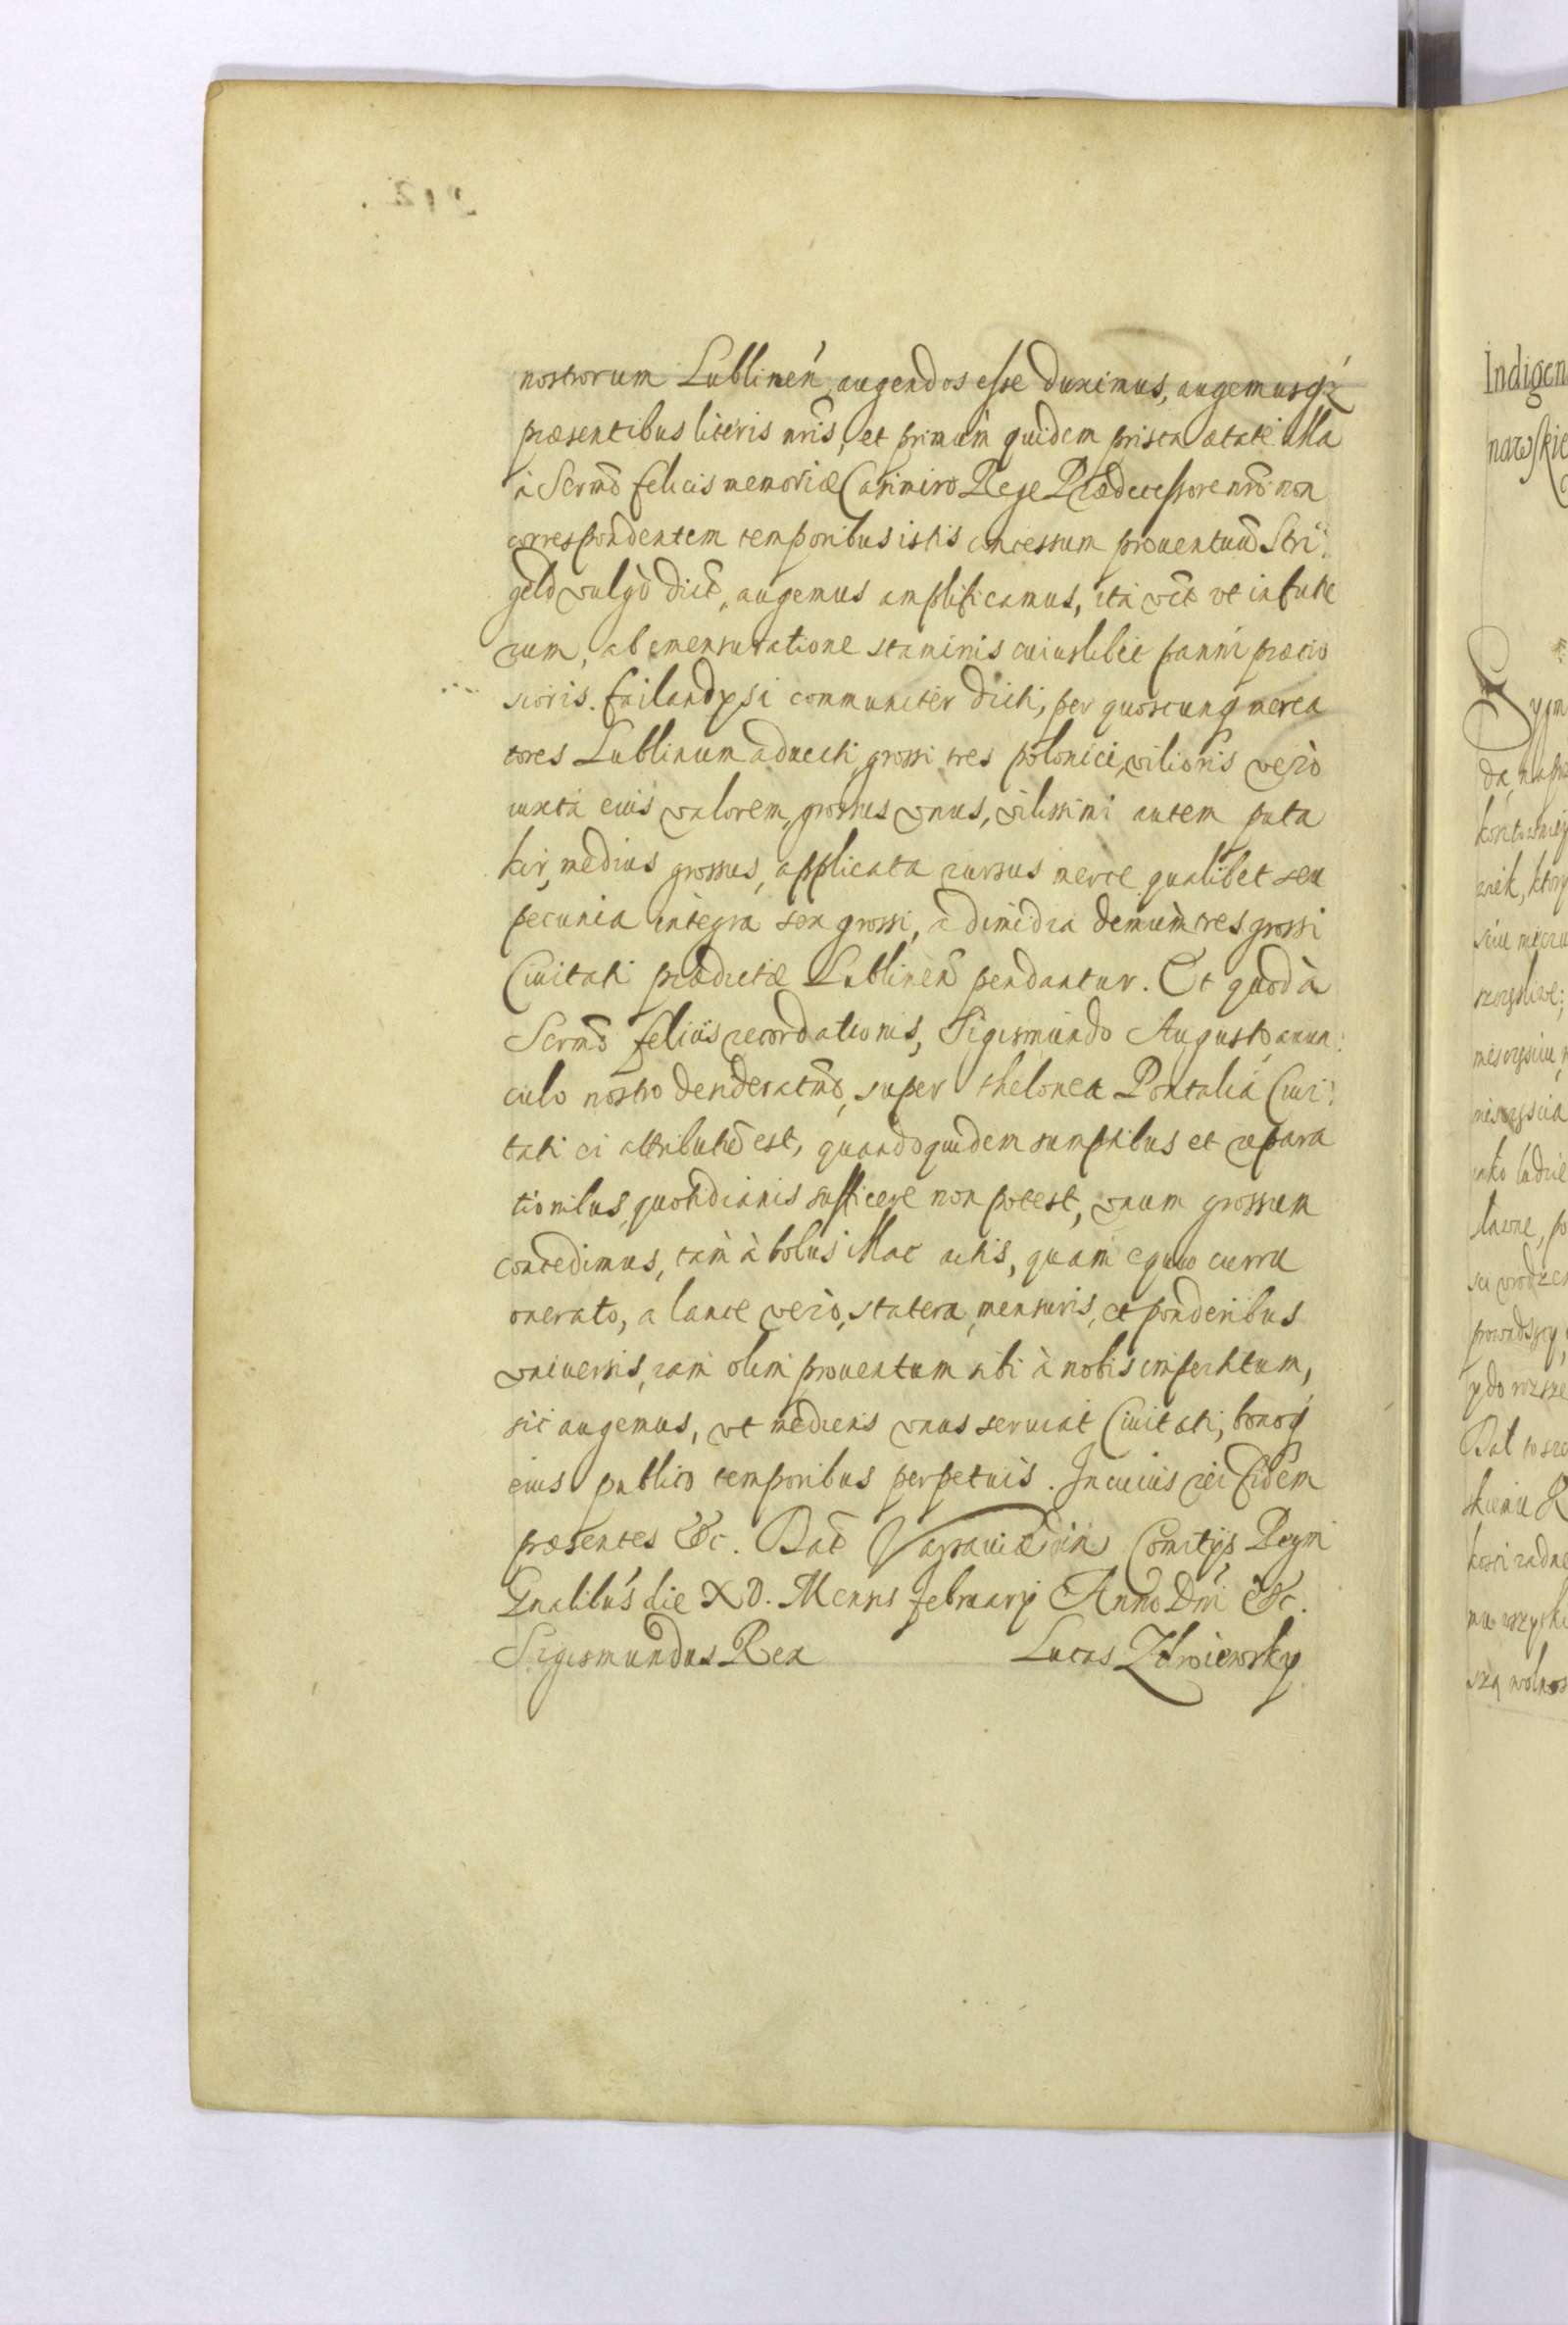 212.
nostrorum Lublinen̄ augendos esse duximus, augemusq₃
præsentibus literis nr̄is, et primùm quidem prisca ætate illa
à Sermō felicis memoriæ Casimiro Rege Prædecessore nrō non
correspondentem temporibus istis concessum prouentum̄ Stri:
geld vulgò dict̄, augemus amplificamus, ità vc̄t vt in futu
rum, ab emensuratione staminis cuiuslibet panni præcio
sioris. failandysi communiter dicti, per quoscunq merca
tores Lublinum aduecti, grossi tres polonici, vilioris verò
iuxta eius valorem, grossus vnus, vilissimi autem puta
kir, medius grossus, applicata rursus merce qualibet seu
pecunia integra sex grossi, à dimidia demùm tres grossi
Ciuitati prædictæ Lublinen̄ pendantur. Et quod à
Sermō felicis recordationis, Sigismundo Augusto auun:
culo nostro desideratmō, super thelonea Pontalia Ciui:
tati ei attributū est, quandoquidem sumptibus et repara
tionibus quotidianis sufficere non potest, vnum grossum
concedimus, tàm à bobus mac atis, quam equo curru
onerato, a lance verò, statera, mensuris, et ponderibus
vniuersis, iam olim prouentum sibi à nobis impertitum,
sic augemus, vt medius vnus seruiat Ciuitati, bonoq
eius publico temporibus perpetuis. In cuius rei fidem
præsentes &c. Dat̄ Varsauiæ in Comitijs Regni
Gnalibus die XV. Mensis february Anno Dni &c.
Sigismundus Rex Lucas Zdroiewsky
Indigen
nawskie
Sygm
da, na prz
ko ludzie
prowadszy
ydo rozsze
Dat